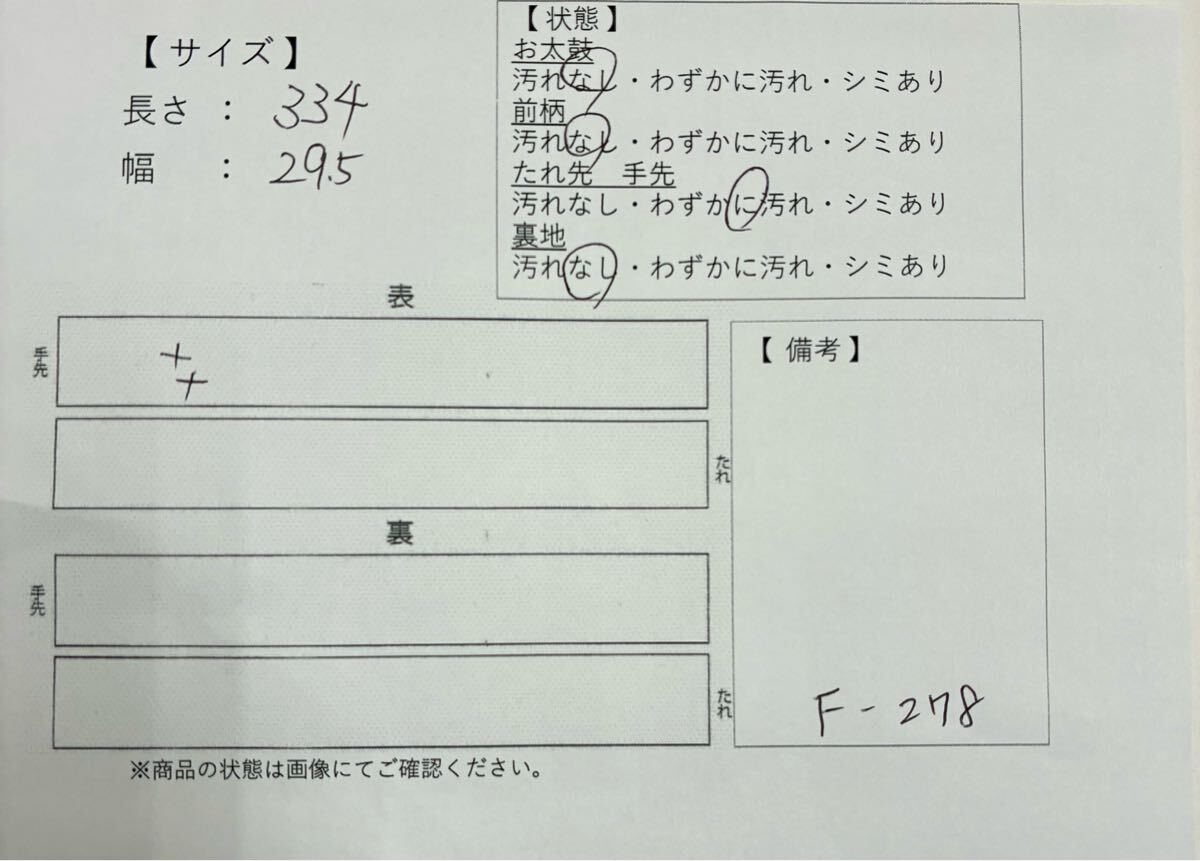 【サイズ】
長さ ： 334
幅 ： 29.5
【状態】
お太鼓
汚れなし・わずかに汚れ・シミあり
前柄
汚れなし・わずかに汚れ・シミあり
たれ先　手先
汚れなし・わずかに汚れ・シミあり
裏地
汚れなし・わずかに汚れ・シミあり
表
手先
たれ
裏
手先
たれ
【備考】
F-278
※商品の状態は画像にてご確認ください。